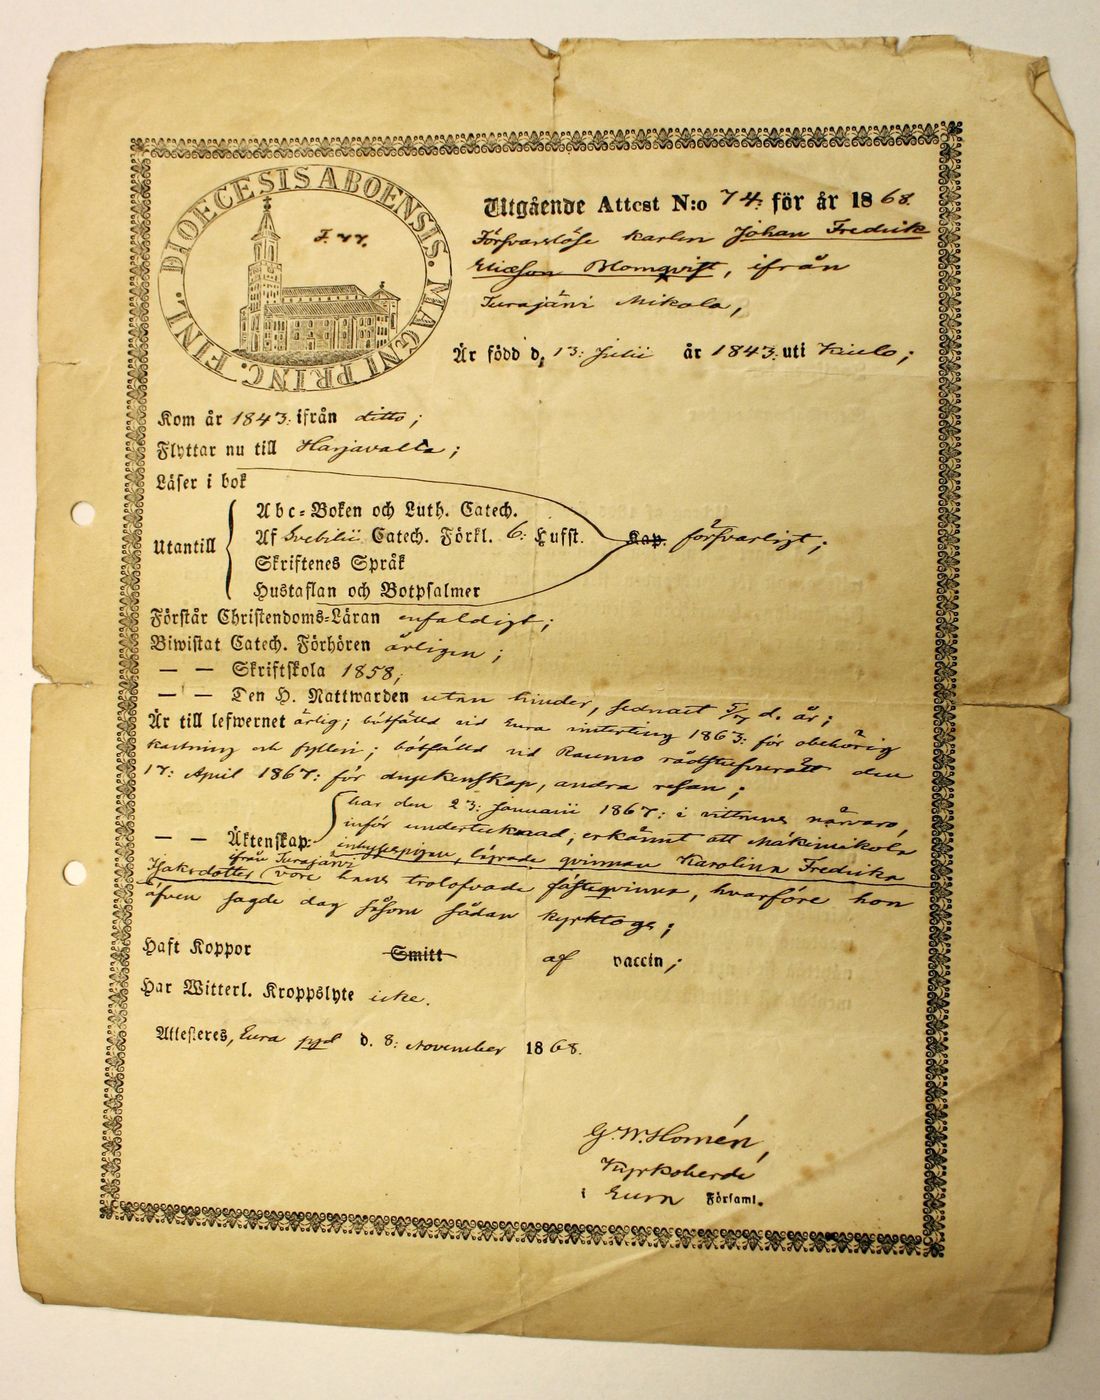 DIOECESIS ABOENSIS. MAGNI PRINC. FINL.
F. 44.
Utgående Attest N:o 74: för år 1868.
Försvarslöse karlen Johan Fredrik
Eliæson Blomqvist, ifrån
Turajärvi Mikola,
Är född d. 13: Julii år 1843: uti Kiulo;
Kom år 1843: ifrån ditto;
Flyttar nu till Harjavalta;
Läser i bok
Utantill
Abc-Boken och Luth. Catech.
Af Svebilii Catech. Förkl. 6: Hufst. Kap. försvarligt;
Skriftenes Språk
Hustaflan och Botpsalmer
Förstår Christendoms-Läran enfaldigt;
Biwistat Catech. Förhören årligen;
— — Skriftskola 1858;
— — Den H. Nattwarden utan hinder, sednast d. år;
Är till lefwernet ärlig; bötfälld vid Eura vinterting 1863: för obehörig
kastning och fylleri; bötfälld vid Raumo rådstufvurätt den
17: April 1867: för dryckenskap, andra resan;
— — Äktenskap: har den 23: Januarii 1867: i vittnens närvaro,
inför undertecknad, erkännt att Mäkimikola
inhysespigan, lägrade qvinnan Karolina Fredrika
ifrån Turajärvi
Isaksdotter vore hans trolofvade fästeqvinna, hvarföre hon
äfven sagde dag såsom sådan kyrktogs;
Haft Koppor Smitt af vaccin;
Har Witterl. Kroppslyte icke.
Attesteres, Eura ppd d. 8: November 1868.
G. W. Homén,
Kyrkoherde
i Eura Församl.